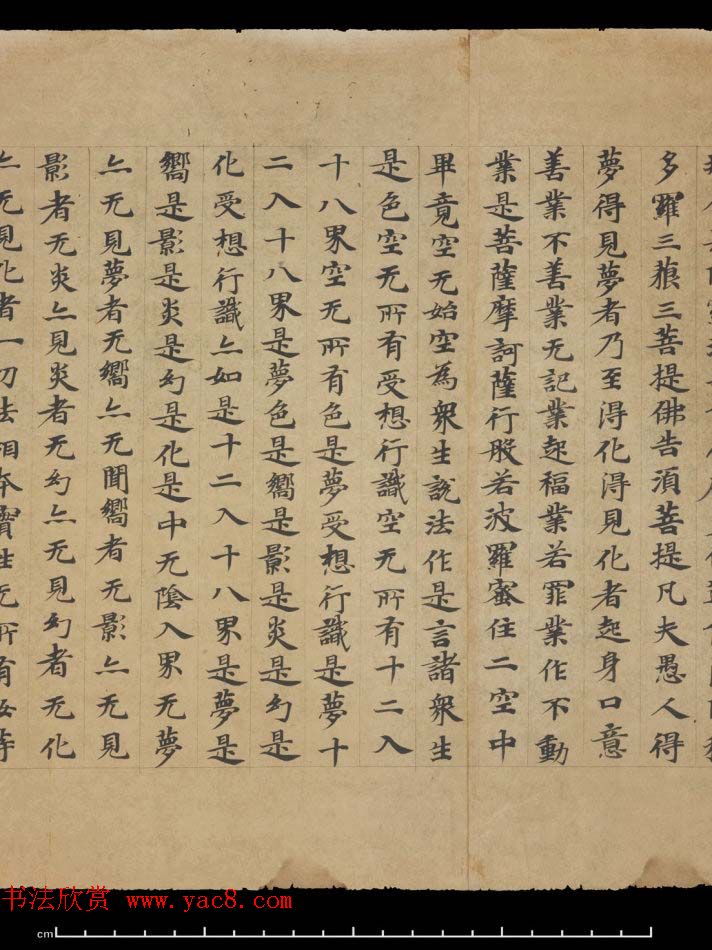 多羅三藐三菩提佛告須菩提凡夫愚人得
夢得見夢者乃至得化得見化者起身口意
善業不善業无記業起福業若罪業作不動
業是菩薩摩訶薩行般若波羅蜜住二空中
畢竟空无始空為眾生說法作是言諸眾生
是色空无所有受想行識空无所有十二入
十八界空无所有色是夢受想行識是夢十
二入十八界是夢色是嚮是影是炎是幻是
化受想行識亦如是十二入十八界是夢是
嚮是影是炎是幻是化是中无陰入界无夢
亦无見夢者无嚮亦无聞嚮者无影亦无見
影者无炎亦見炎者无幻亦无見幻者无化
亦无見化者一切法相本實性无所有汝等
书法欣赏 www.yac8.com
cm